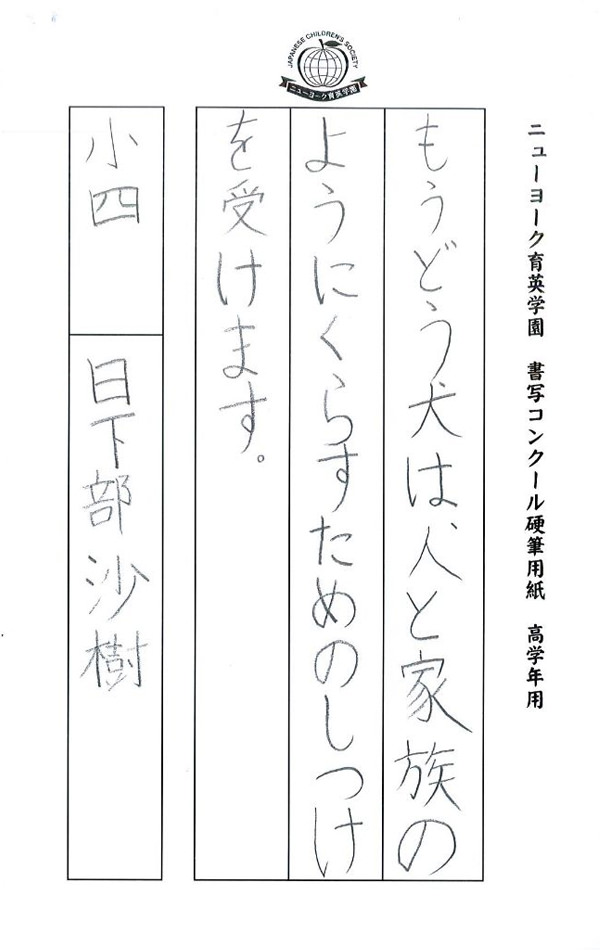 JAPANESE CHILDREN'S SOCIETY
ニューヨーク育英学園
ニューヨーク育英学園 書写コンクール硬筆用紙 高学年用
もうどう犬は、人と家族の
ようにくらすためのしつけ
を受けます。
小四
日下部沙樹